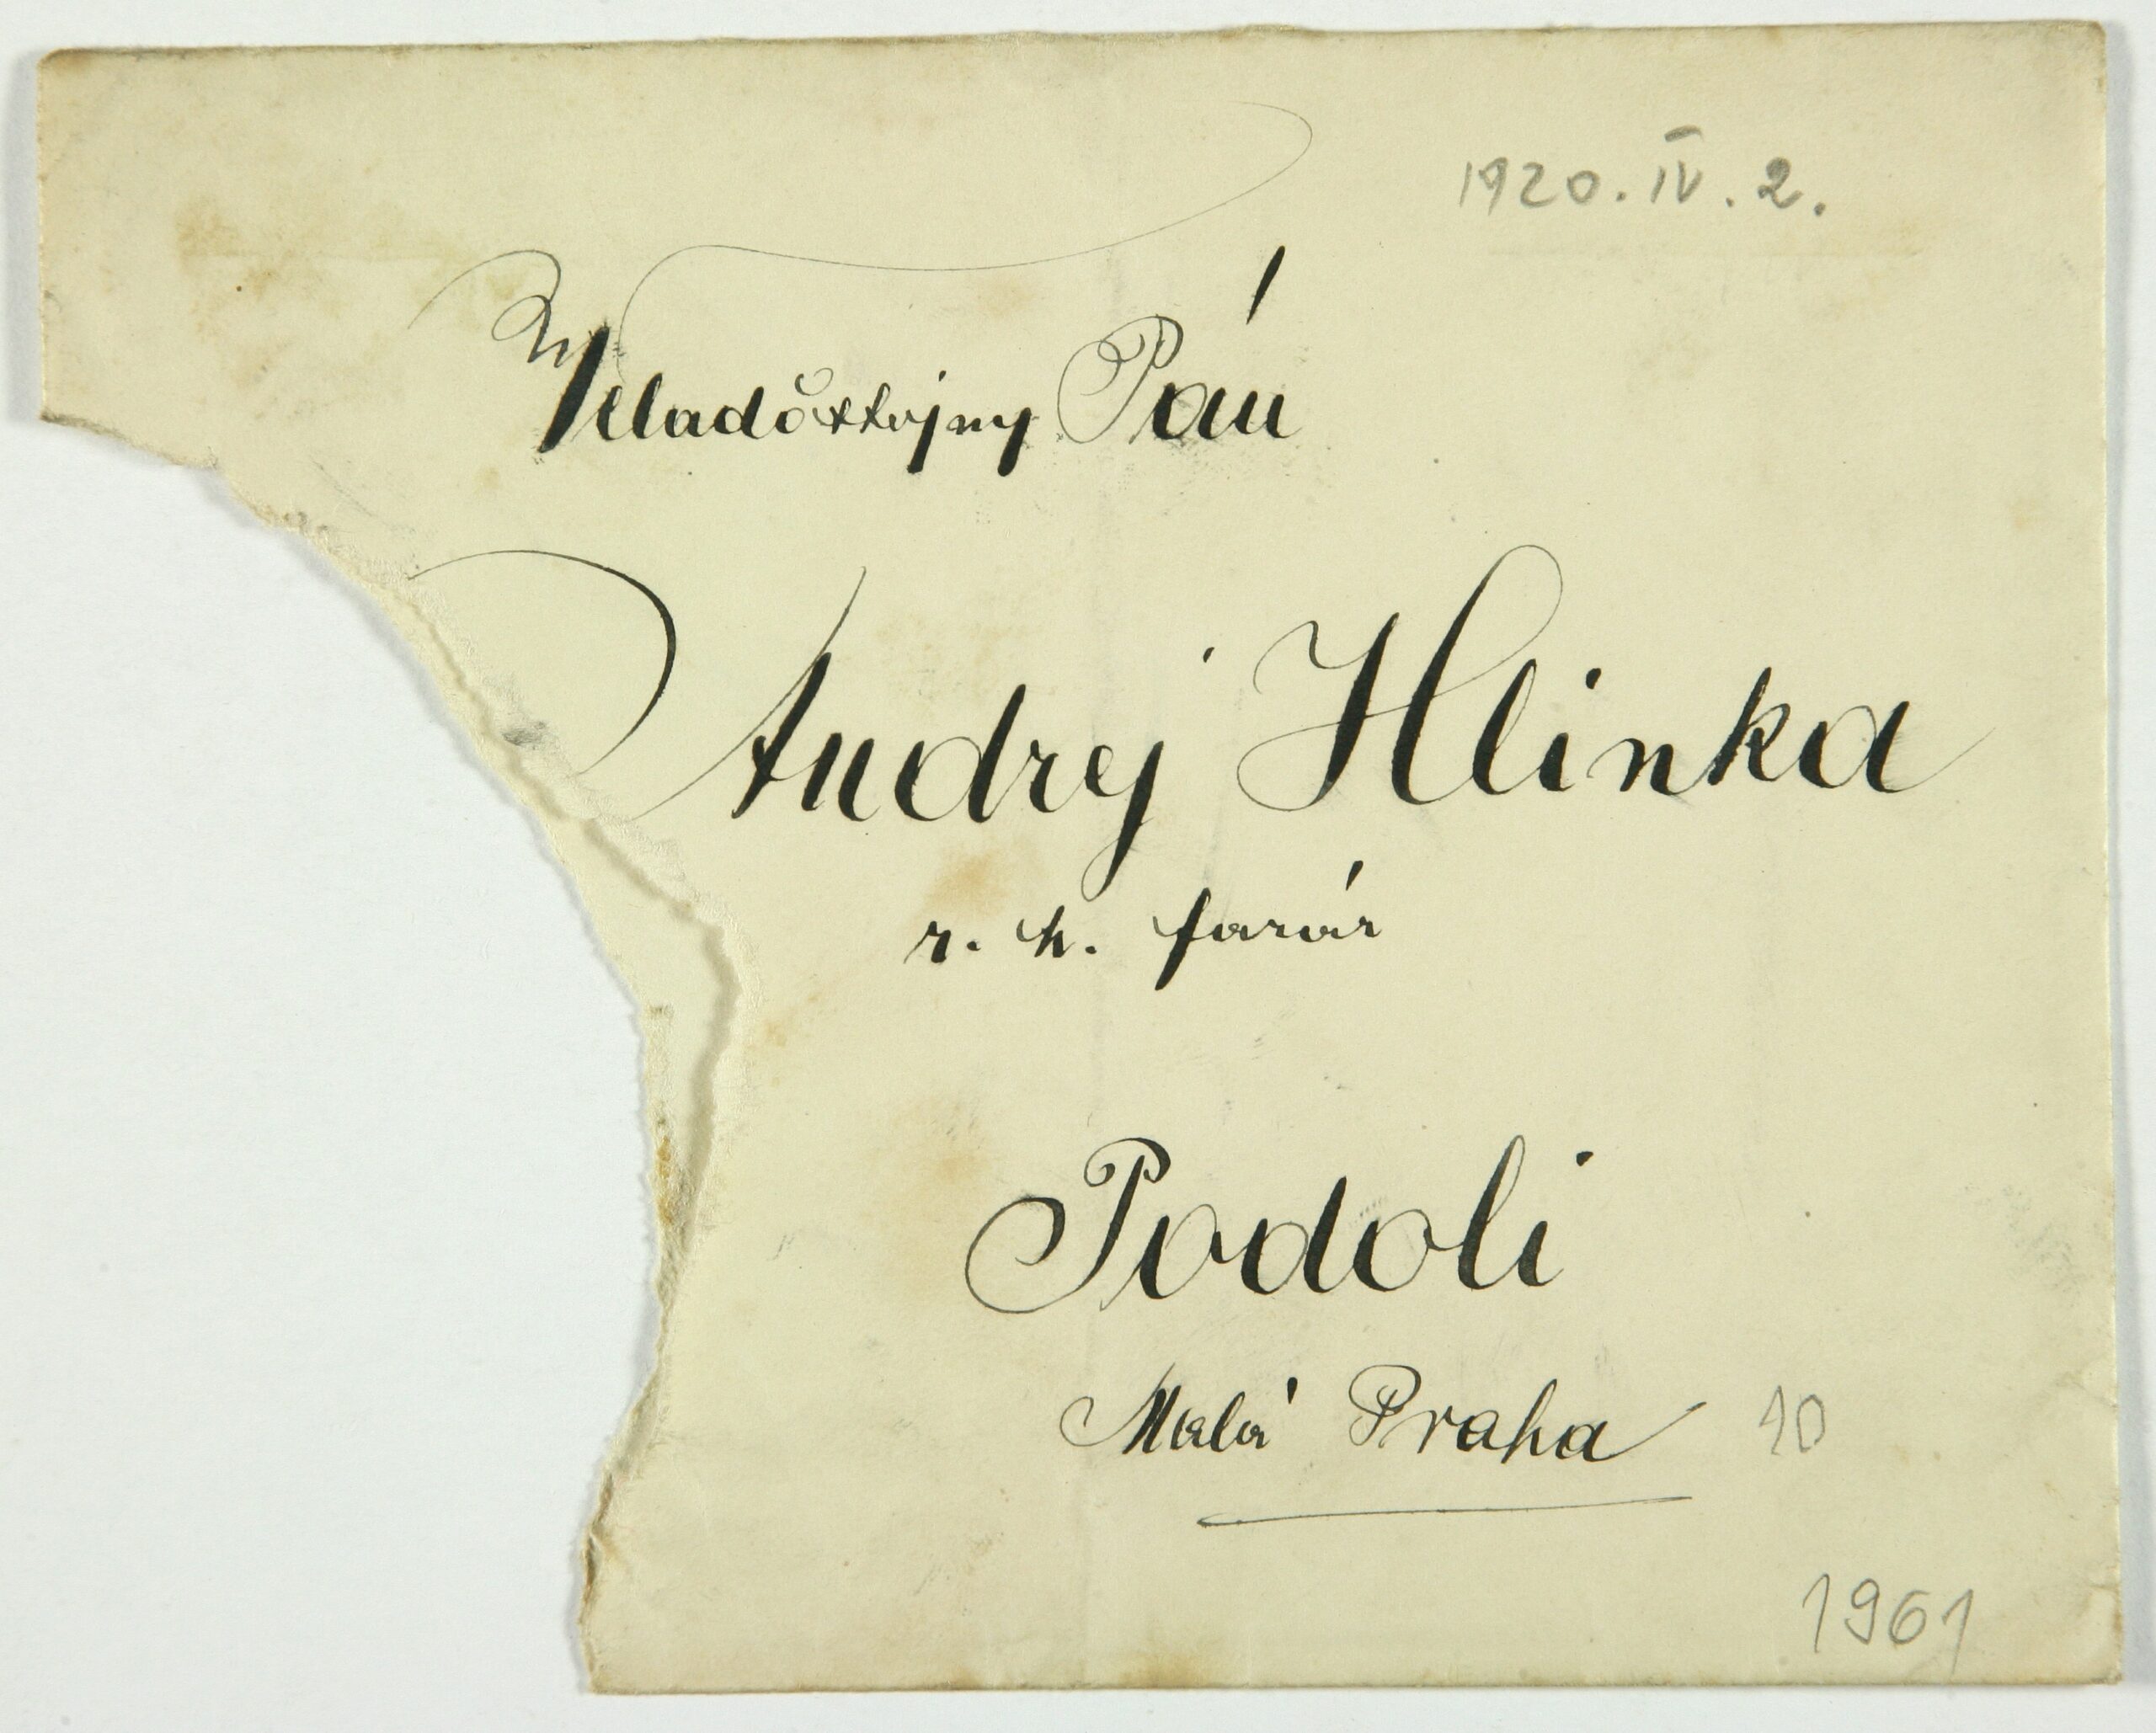 1920. IV. 2.
Veladôstojny Pán
Andrej Hlinka
r. k. farár
Podoli
Malá Praha 10
1961